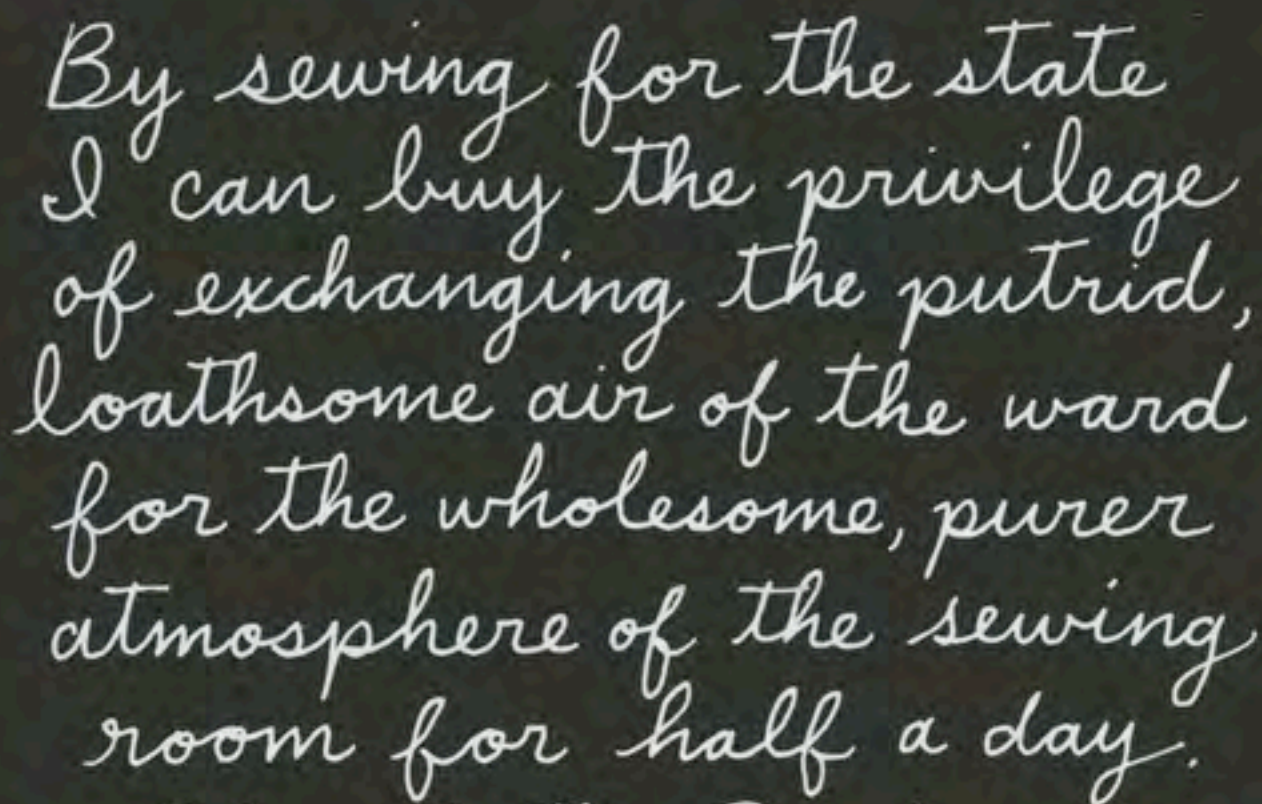 By sewing for the state
I can buy the privilege
of exchanging the putrid,
loathsome air of the ward
for the wholesome, purer
atmosphere of the sewing
room for half a day.